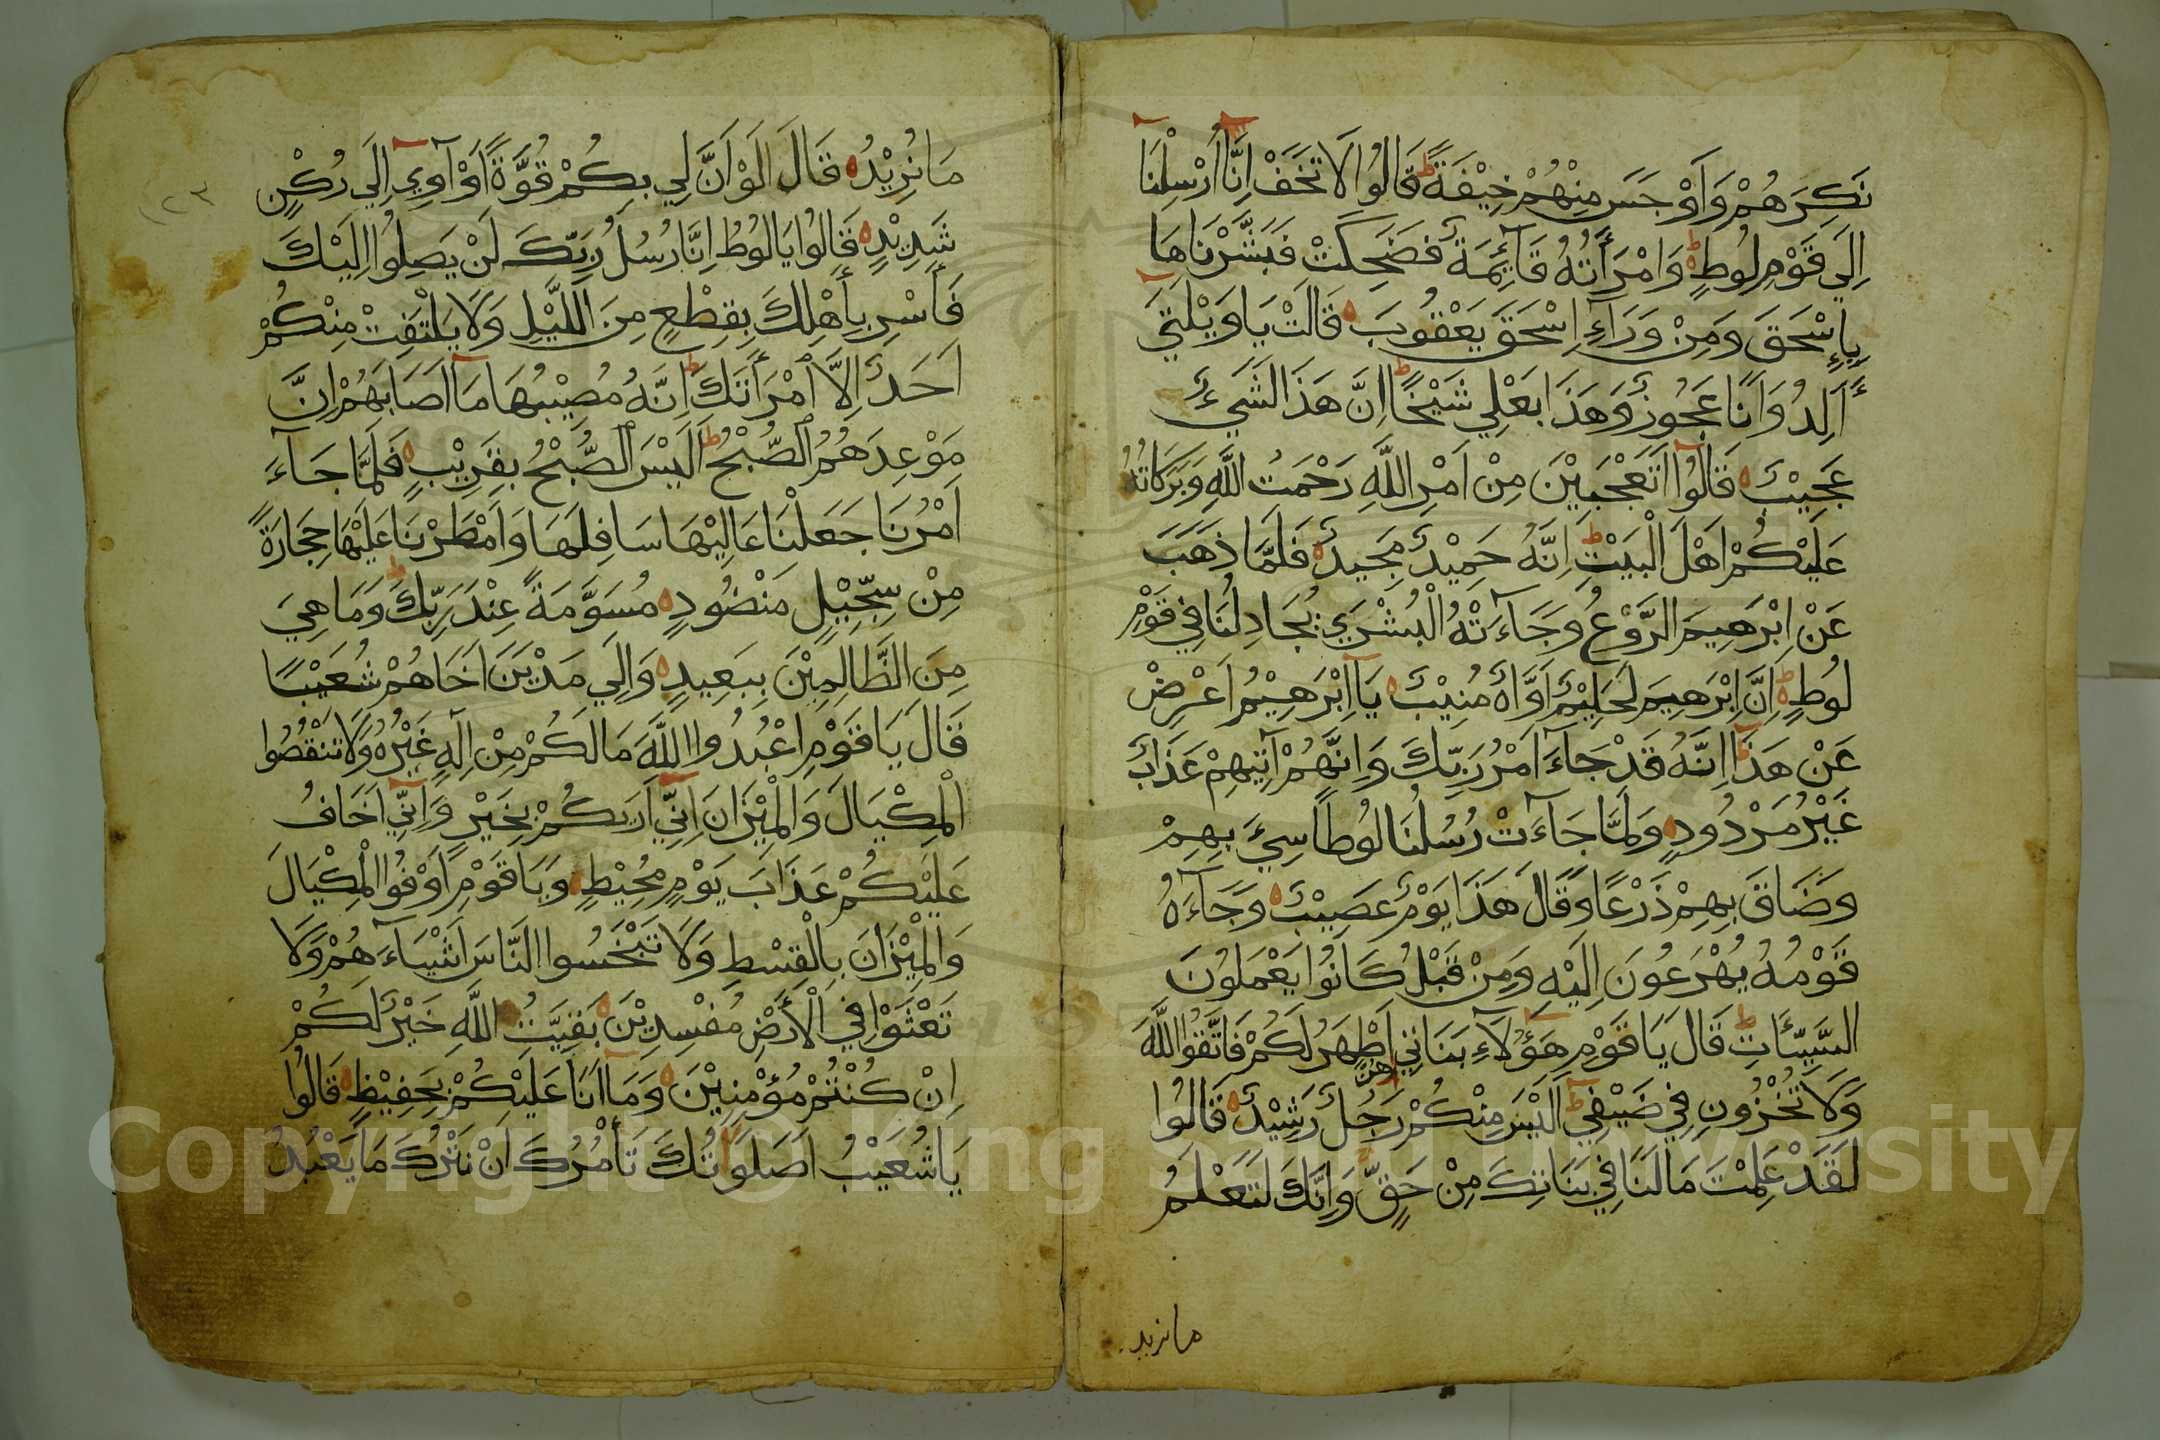 نَكِرَهُمْ وَاَوْجَسَ مِنْهُمْ خِيْفَةً ط قَالُوا لَا تَخَفْ اِنَّا اُرْسِلْنَا
اِلَي قَوْمِ لُوطٍ ط وَامْرَأَتُهُ قَآئِمَةٌ فَضَحِكَتْ فَبَشَّرْنَاهَا
بِإِسْحَقَ وَمِنْ وَرَآءِ اِسْحَقَ يَعْقُوبَ ه قَالَتْ يَاوَيْلَتَي
ءَاَلِدُ وَاَنَا عَجُوزٌ وَهَذَا بَعْلِي شَيْخًا ط اِنَّ هَذَا لَشَيْءٌ
عَجِيْبٌ ه قَالُوآ اَتَعْجَبِيْنَ مِنْ اَمْرِ اللَّهِ رَحْمَتُ اللَّهِ وَبَرَكَاتُهُ
عَلَيْكُمْ اَهْلَ الْبَيْتِ ط اِنَّهُ حَمِيْدٌ مَجِيْدٌ ه فَلَمَّا ذَهَبَ
عَنْ اِبْرَهِيمَ الرَّوْعُ وَجَآءَتْهُ الْبُشْرَي يُجَادِلُنَا فِي قَوْمِ
لُوطٍ ه اِنَّ اِبْرَهِيمَ لَحَلِيْمٌ اَوَّاهٌ مُنِيْبٌ ه يَآاِبْرَهِيْمُ اَعْرِضْ
عَنْ هَذَآ اِنَّهُ قَدْ جَآءَ اَمْرُ رَبِّكَ وَاِنَّهُمْ آتِيهِمْ عَذَابٌ
غَيْرُ مَرْدُودٍ ه وَلَمَّا جَآءَتْ رُسُلُنَا لُوطًا سِيْءَ بِهِمْ
وَضَاقَ بِهِمْ ذَرْعًا وَقَالَ هَذَا يَوْمٌ عَصِيْبٌ ه وَجَآءَهُ
قَوْمُهُ يُهْرَعُونَ اِلَيْهِ وَمِنْ قَبْلُ كَانُوا يَعْمَلُونَ
السَّيِّئَاتِ ط قَالَ يَاقَوْمِ هَؤُلَآءِ بَنَاتِي هُنَّ اَطْهَرُ لَكُمْ فَاتَّقُوا اللَّهَ
وَلَا تُخْزُونِ فِي ضَيْفِي ط اَلَيْسَ مِنْكُمْ رَجُلٌ رَشِيْدٌ ه قَالُوا
لَقَدْ عَلِمْتَ مَا لَنَا فِي بَنَاتِكَ مِنْ حَقٍّ وَاِنَّكَ لَتَعْلَمُ
ما نريد
١٢٣
مَا نُرِيْدُ ه قَالَ لَوْ اَنَّ لِي بِكُمْ قُوَّةً اَوْ آوِي اِلَي رُكْنٍ
شَدِيْدٍ ه قَالُوا يَالُوطُ اِنَّا رُسُلُ رَبِّكَ لَنْ يَصِلُوا اِلَيْكَ
فَأَسْرِ بِأَهْلِكَ بِقِطْعٍ مِنَ اللَّيْلِ وَلَا يَلْتَفِتْ مِنْكُمْ
اَحَدٌ اِلَّا امْرَأَتَكَ ط اِنَّهُ مُصِيْبُهَا مَآ اَصَابَهُمْ اِنَّ
مَوْعِدَهُمُ الصُّبْحُ ط اَلَيْسَ الصُّبْحُ بِقَرِيْبٍ ه فَلَمَّا جَآءَ
اَمْرُنَا جَعَلْنَا عَالِيْهَا سَافِلَهَا وَاَمْطَرْنَا عَلَيْهَا حِجَارَةً
مِنْ سِجِّيْلٍ مَنْضُودٍ ه مُسَوَّمَةً عِنْدَ رَبِّكَ ط وَمَا هِيَ
مِنَ الظَّالِمِيْنَ بِبَعِيدٍ ه وَاِلَي مَدْيَنَ اَخَاهُمْ شُعَيْبًا
قَالَ يَاقَوْمِ اعْبُدُوا اللَّهَ مَا لَكُمْ مِنْ اِلَهٍ غَيْرُهُ وَلَا تَنْقُصُوا
الْمِكْيَالَ وَالْمِيْزَانَ اِنِّي اَرَيكُمْ بِخَيْرٍ وَاِنِّي اَخَافُ
عَلَيْكُمْ عَذَابَ يَوْمٍ مُحِيْطٍ ه وَيَاقَوْمِ اَوْفُوا الْمِكْيَالَ
وَالْمِيْزَانَ بِالْقِسْطِ وَلَا تَبْخَسُوا النَّاسَ اَشْيَآءَهُمْ وَلَا
تَعْثَوْا فِي الْأَرْضِ مُفْسِدِيْنَ ه بَقِيَّتُ اللَّهِ خَيْرٌ لَكُمْ
اِنْ كُنْتُمْ مُؤْمِنِيْنَ ه وَمَآ اَنَا عَلَيْكُمْ بِحَفِيْظٍ ه قَالُوا
يَاشُعَيْبُ اَصَلَوَاتُكَ تَأْمُرُكَ اَنْ نَتْرُكَ مَا يَعْبُدُ
Copyright © King Saud University